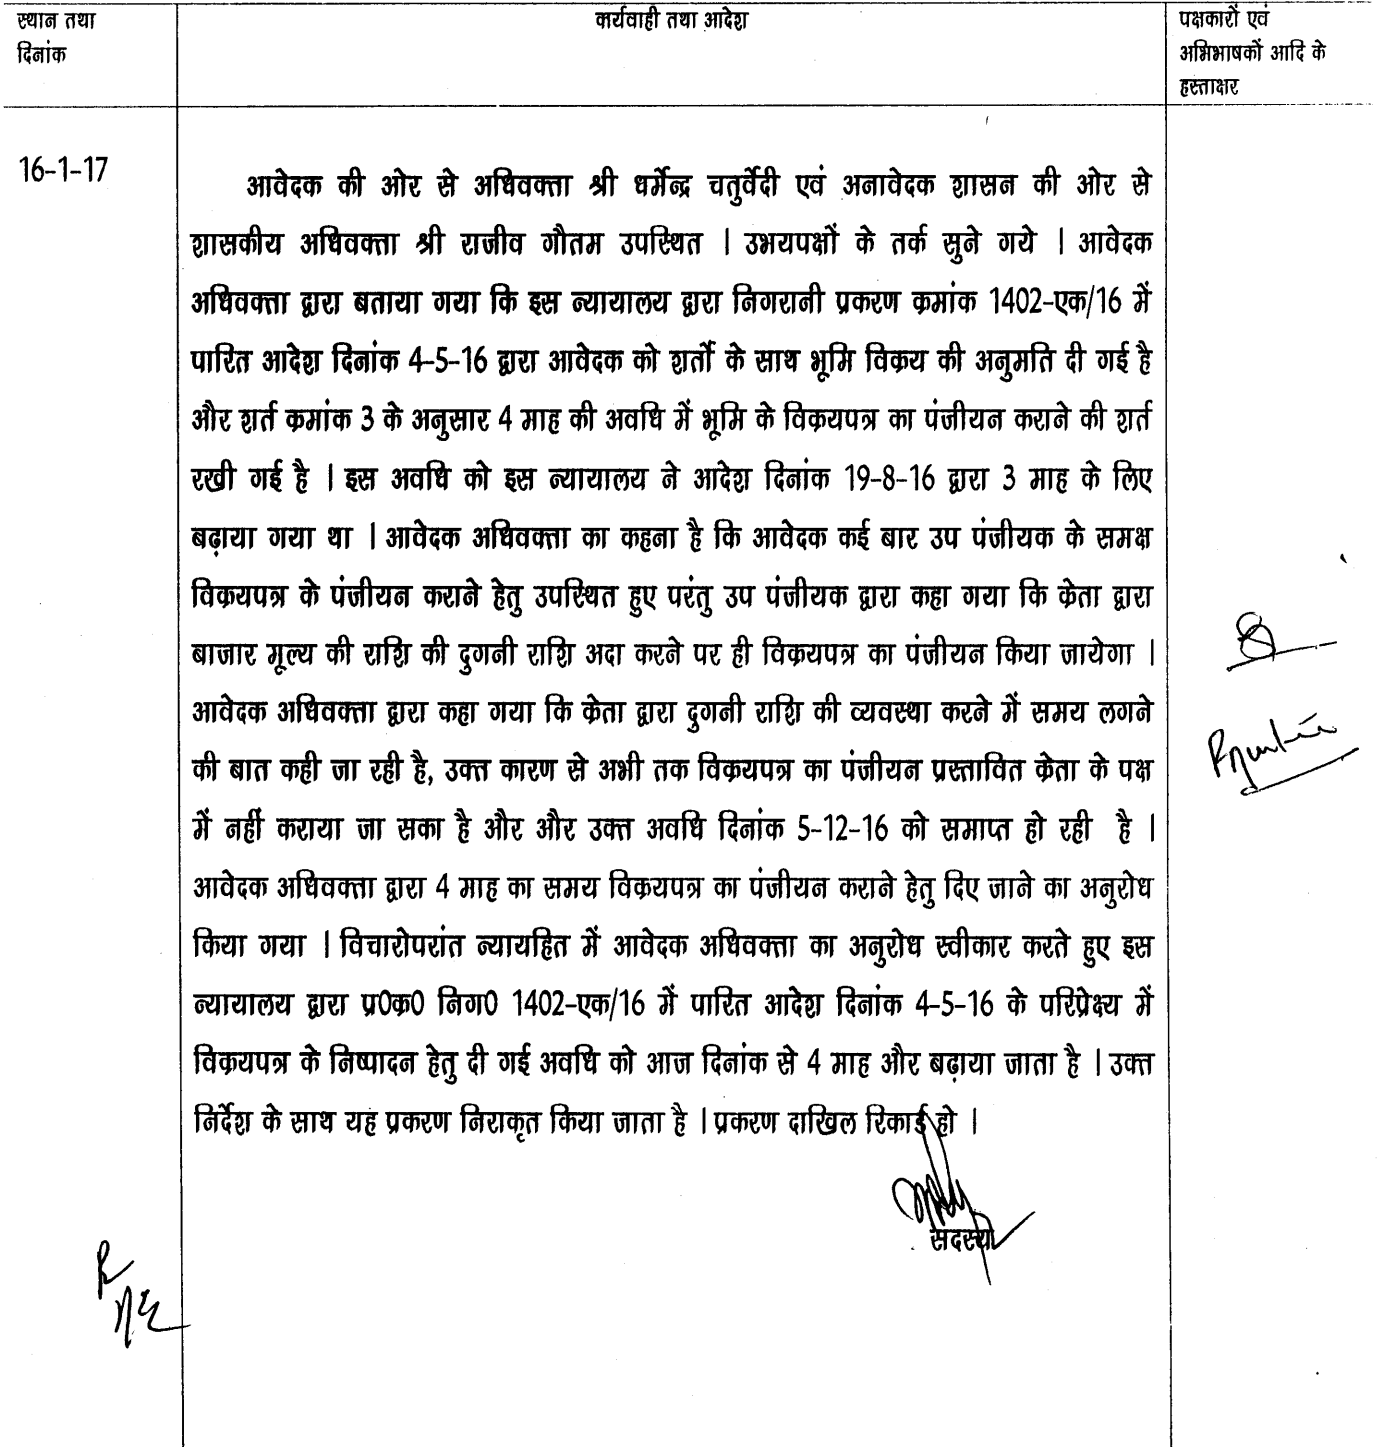 स्थान तथा
दिनांक
कार्यवाही तथा आदेश
पक्षकारों एवं
अभिभाषकों आदि के
हस्ताक्षर
16-1-17
आवेदक की ओर से अधिवक्ता श्री धर्मेन्द्र चतुर्वेदी एवं अनावेदक शासन की ओर से
शासकीय अधिवक्ता श्री राजीव गौतम उपस्थित । उभयपक्षों के तर्क सुने गये । आवेदक
अधिवक्ता द्वारा बताया गया कि इस न्यायालय द्वारा निगरानी प्रकरण क्रमांक 1402-एक/16 में
पारित आदेश दिनांक 4-5-16 द्वारा आवेदक को शर्तो के साथ भूमि विक्रय की अनुमति दी गई है
और शर्त क्रमांक 3 के अनुसार 4 माह की अवधि में भूमि के विक्रयपत्र का पंजीयन कराने की शर्त
रखी गई है । इस अवधि को इस न्यायालय ने आदेश दिनांक 19-8-16 द्वारा 3 माह के लिए
बढ़ाया गया था । आवेदक अधिवक्ता का कहना है कि आवेदक कई बार उप पंजीयक के समक्ष
विक्रयपत्र के पंजीयन कराने हेतु उपस्थित हुए परंतु उप पंजीयक द्वारा कहा गया कि क्रेता द्वारा
बाजार मूल्य की राशि की दुगनी राशि अदा करने पर ही विक्रयपत्र का पंजीयन किया जायेगा ।
आवेदक अधिवक्ता द्वारा कहा गया कि क्रेता द्वारा दुगनी राशि की व्यवस्था करने में समय लगने
की बात कही जा रही है, उक्त कारण से अभी तक विक्रयपत्र का पंजीयन प्रस्तावित क्रेता के पक्ष
में नहीं कराया जा सका है और और उक्त अवधि दिनांक 5-12-16 को समाप्त हो रही है ।
आवेदक अधिवक्ता द्वारा 4 माह का समय विक्रयपत्र का पंजीयन कराने हेतु दिए जाने का अनुरोध
किया गया । विचारोपरांत न्यायहित में आवेदक अधिवक्ता का अनुरोध स्वीकार करते हुए इस
न्यायालय द्वारा प्र0क्र0 निग0 1402-एक/16 में पारित आदेश दिनांक 4-5-16 के परिप्रेक्ष्य में
विक्रयपत्र के निष्पादन हेतु दी गई अवधि को आज दिनांक से 4 माह और बढ़ाया जाता है । उक्त
निर्देश के साथ यह प्रकरण निराकृत किया जाता है । प्रकरण दाखिल रिकार्ड हो ।
सदस्य